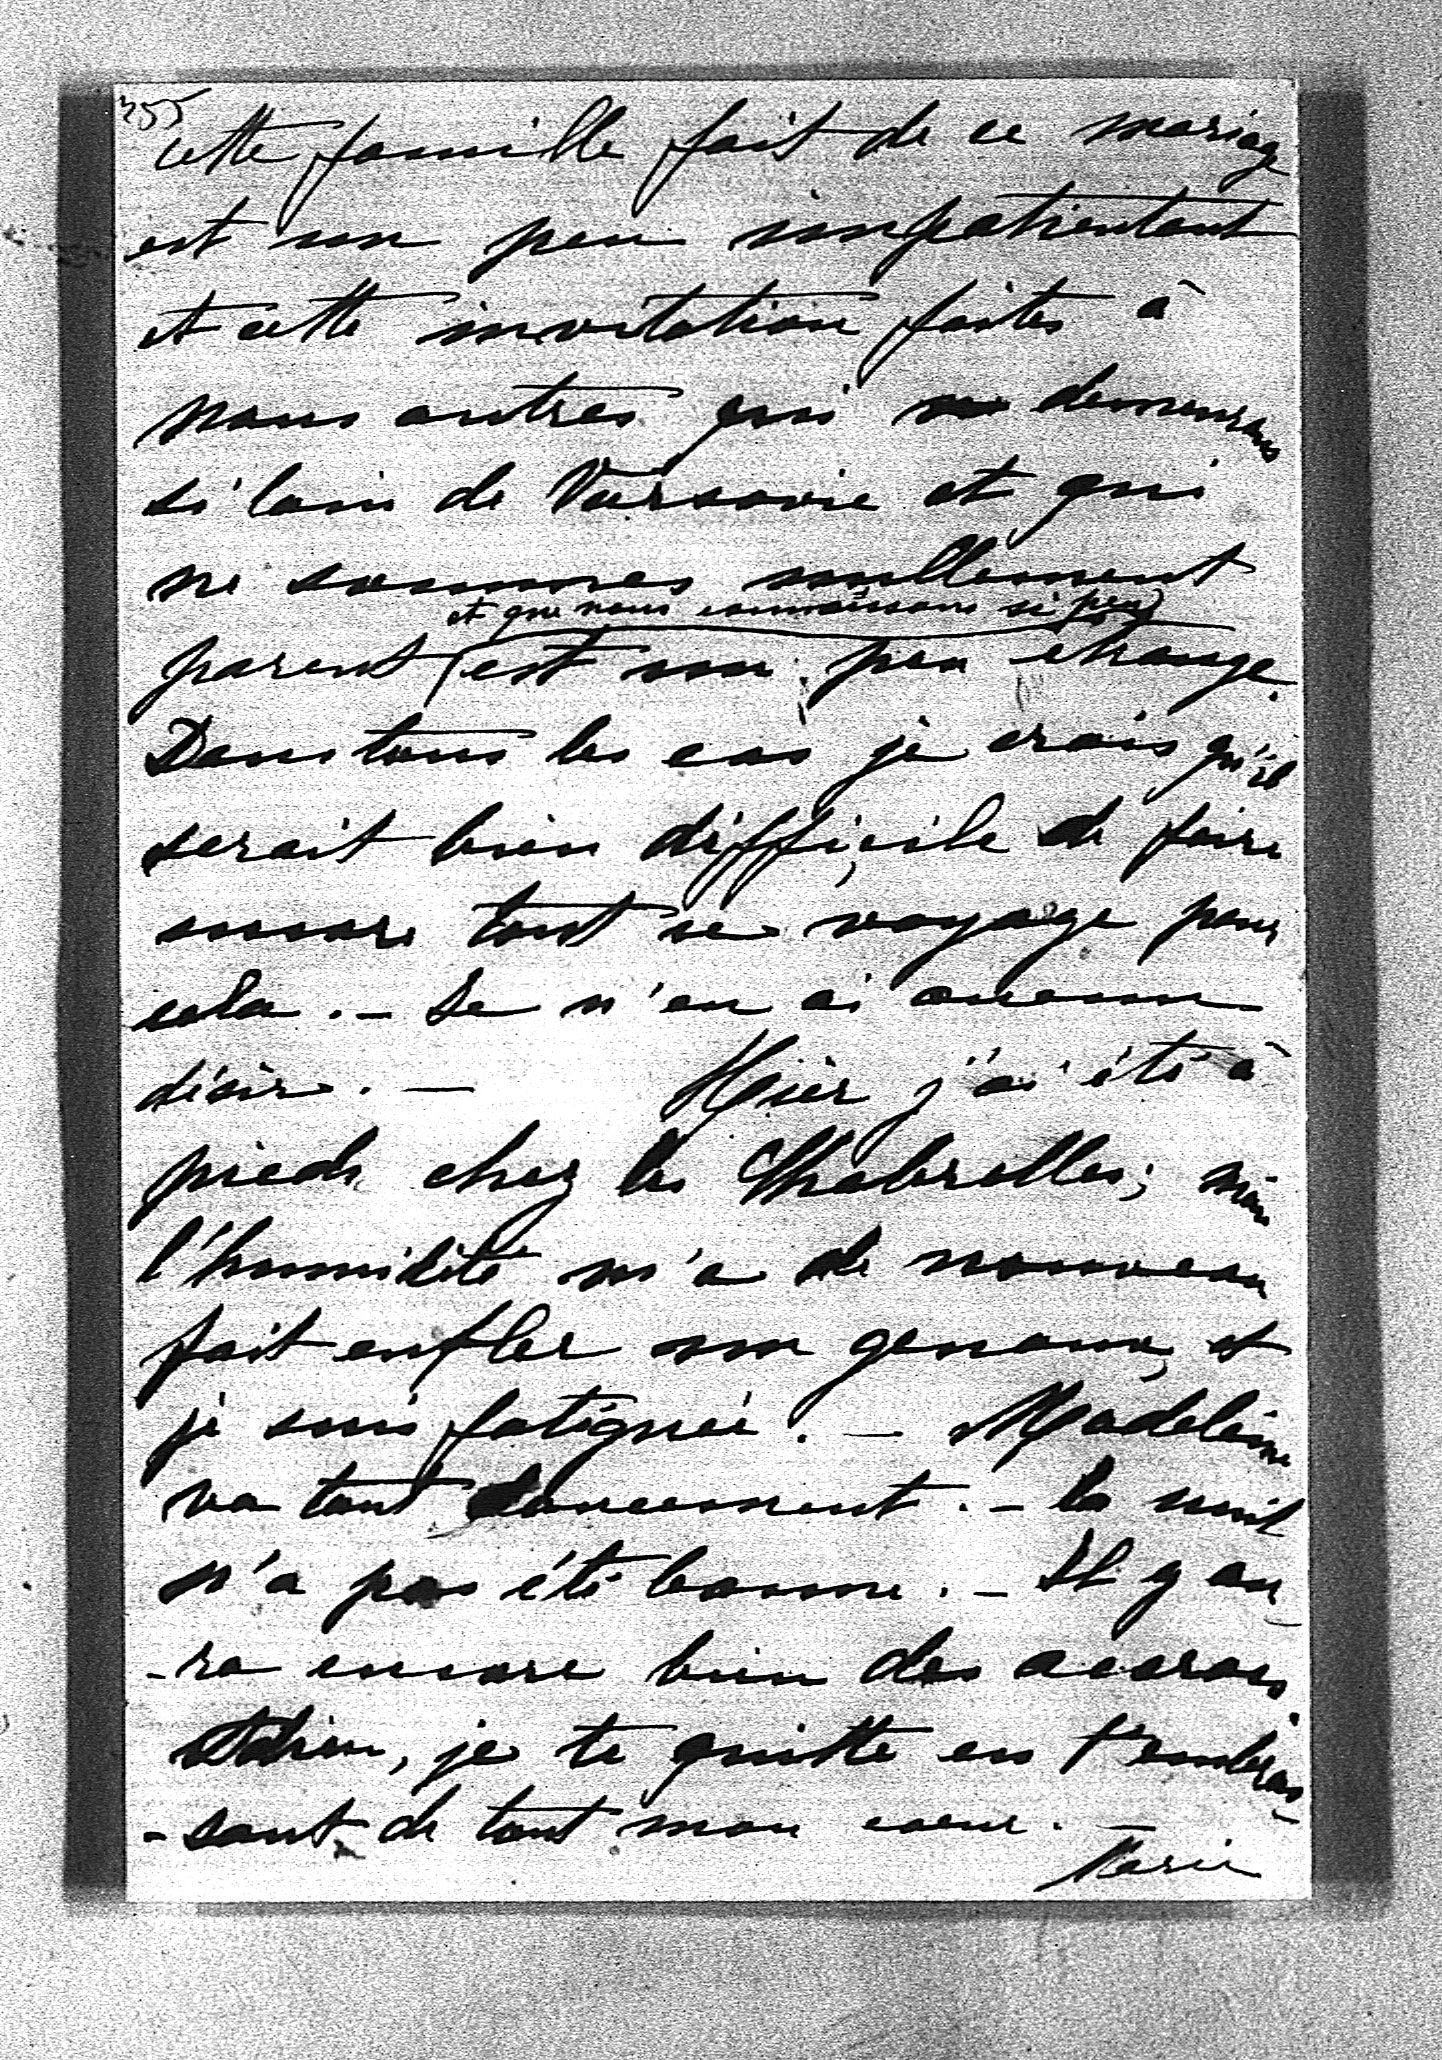 355
cette famille fait de ce mariage
est un peu impatientant
et cette invitation faites à
nous autres qui demeurons
si loin de Varsovie et qui
ne sommes nullement
et que nous connaissons si peu
parent est un peu etrange.
Dans tous les cas je crois qu'il
serait bien difficile de faire
encore tout ce voyage pour
cela. — Je n'en ai aucun
désir. — Hier j'ai été à
pieds chez les Chabrelles; mais
l'humidité m'a de nouveau
fait enfler mon genoux, et
je suis fatiguée. — Madeleine
va tout doucement. — la nuit
n'a pas été bonne. — Il y au-
-ra encore bien des accrocs
Adieu, je te quitte en t'embras-
-sant de tout mon coeur. —
Marie